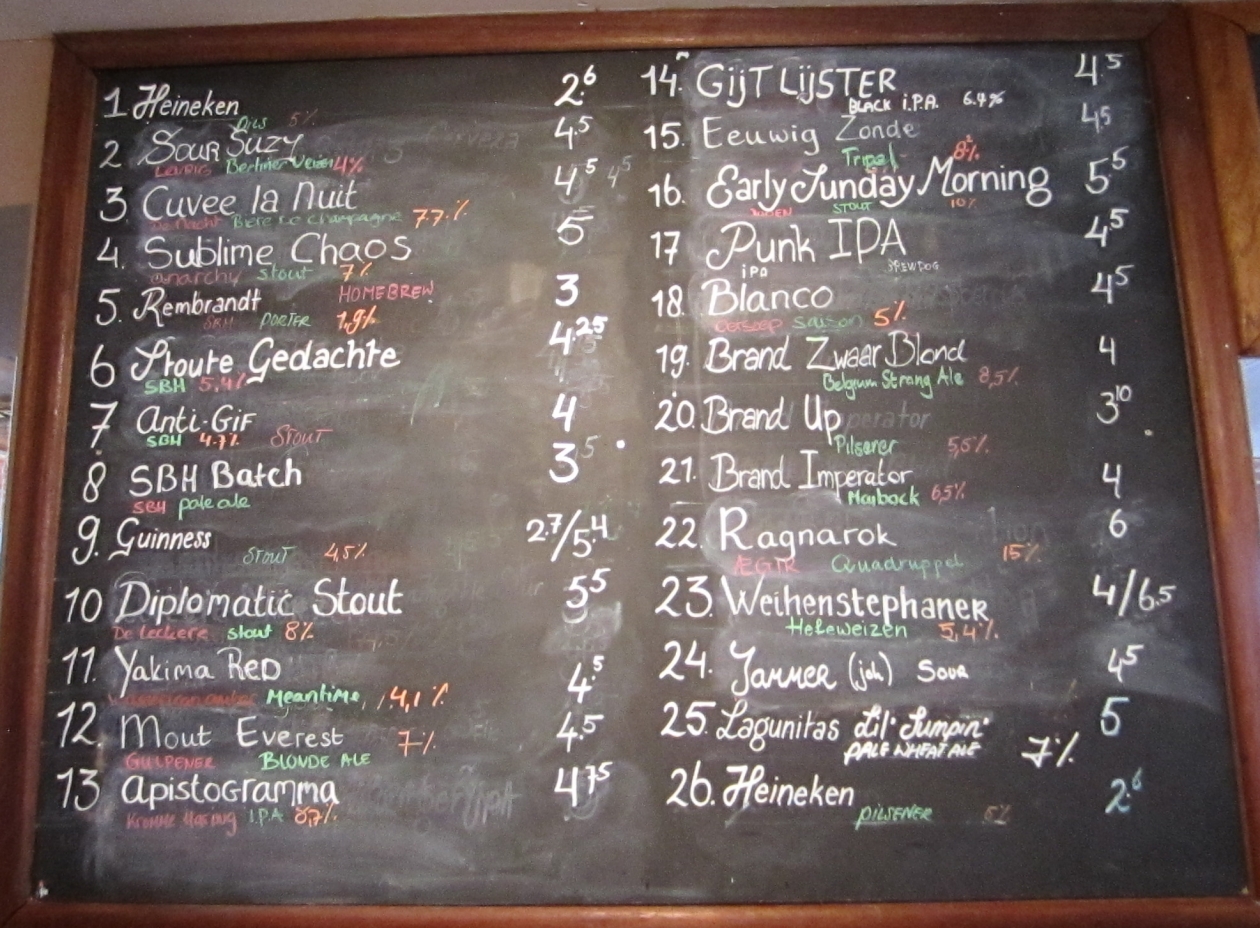 1 Heineken 2.6
Pils 5%
2 Sour Suzy 4.5
Berliner 4%
3 Cuvee la Nuit 4.5
Biere de Champagne 7.7%
4. Sublime Chaos 5
anarchy stout 7%
5. Rembrandt HOMEBREW 3
PORTER
6 Stoute Gedachte 4.25
SBH 5,4%
7 Anti-Gif 4
SBH 4.7% STOUT
8 SBH Batch 3
SBH pale ale
9. Guinness 2.7/5.4
STOUT 4,5%
10 Diplomatic Stout 5.5
De Leckere stout 8%
11. Yakima Red 4.5
Meantime, 4,1%
12. Mout Everest 4.5
GULPENER BLONDE ALE 7%
13 Apistogramma 4.75
I.P.A
14. GijT LijSTER 4.5
BLACK i.P.A. 6.4%
15. Eeuwig Zonde 4.5
Tripel 8%
16. Early Sunday Morning 5.5
STOUT 10%
17 Punk IPA 4.5
iPA BREWDOG
18. Blanco 4.5
Oersoep Saison 5%
19. Brand Zwaar Blond 4
Belgium Strong Ale 8,5%
20. Brand Up 3.10
Pilsener 5,5%
21. Brand Imperator 4
Maybock 6,5%
22. Ragnarok 6
ÆGIR Quadruppel 15%
23. Weihenstephaner 4/6.5
Hefeweizen 5,4%
24. Jammer (joh) Sour 4.5
25. Lagunitas Lil' Sumpin' 5
PALE WHEAT ALE 7%
26. Heineken 2.6
PILSENER 5%